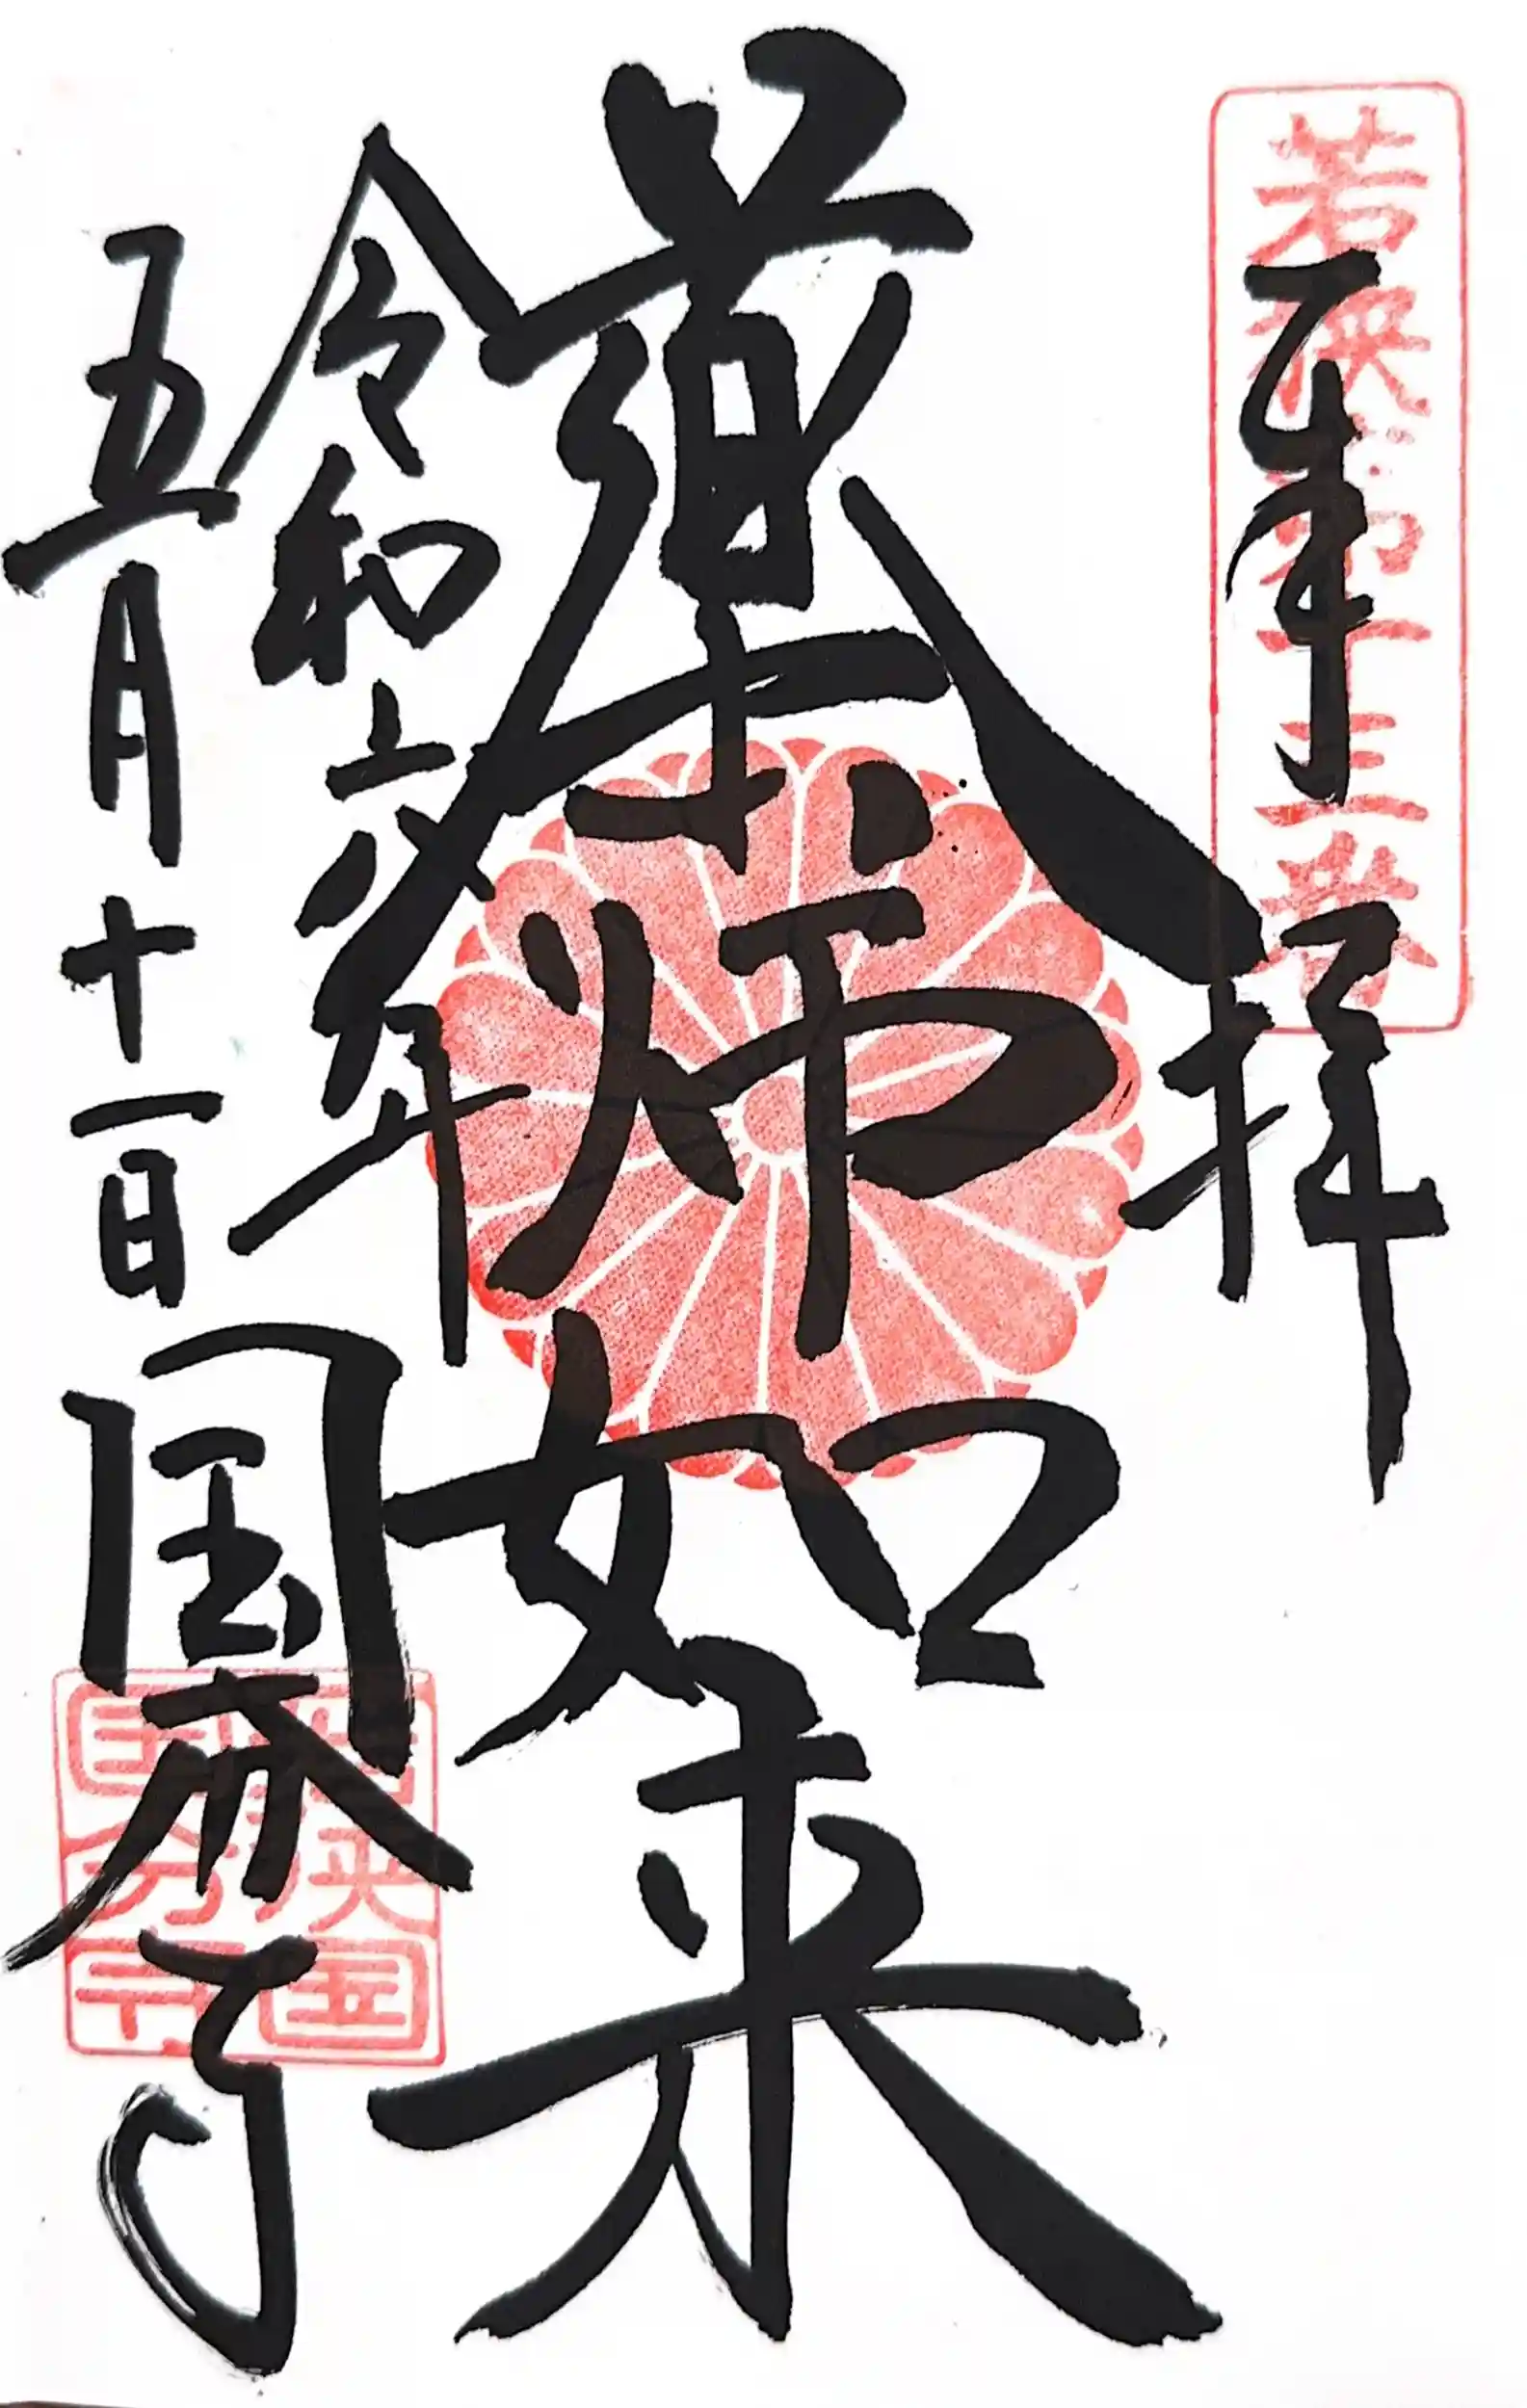 奉拝
若狭第十三番
薬师如来
令和六年
五月十一日
国分寺
若狭国
国分寺